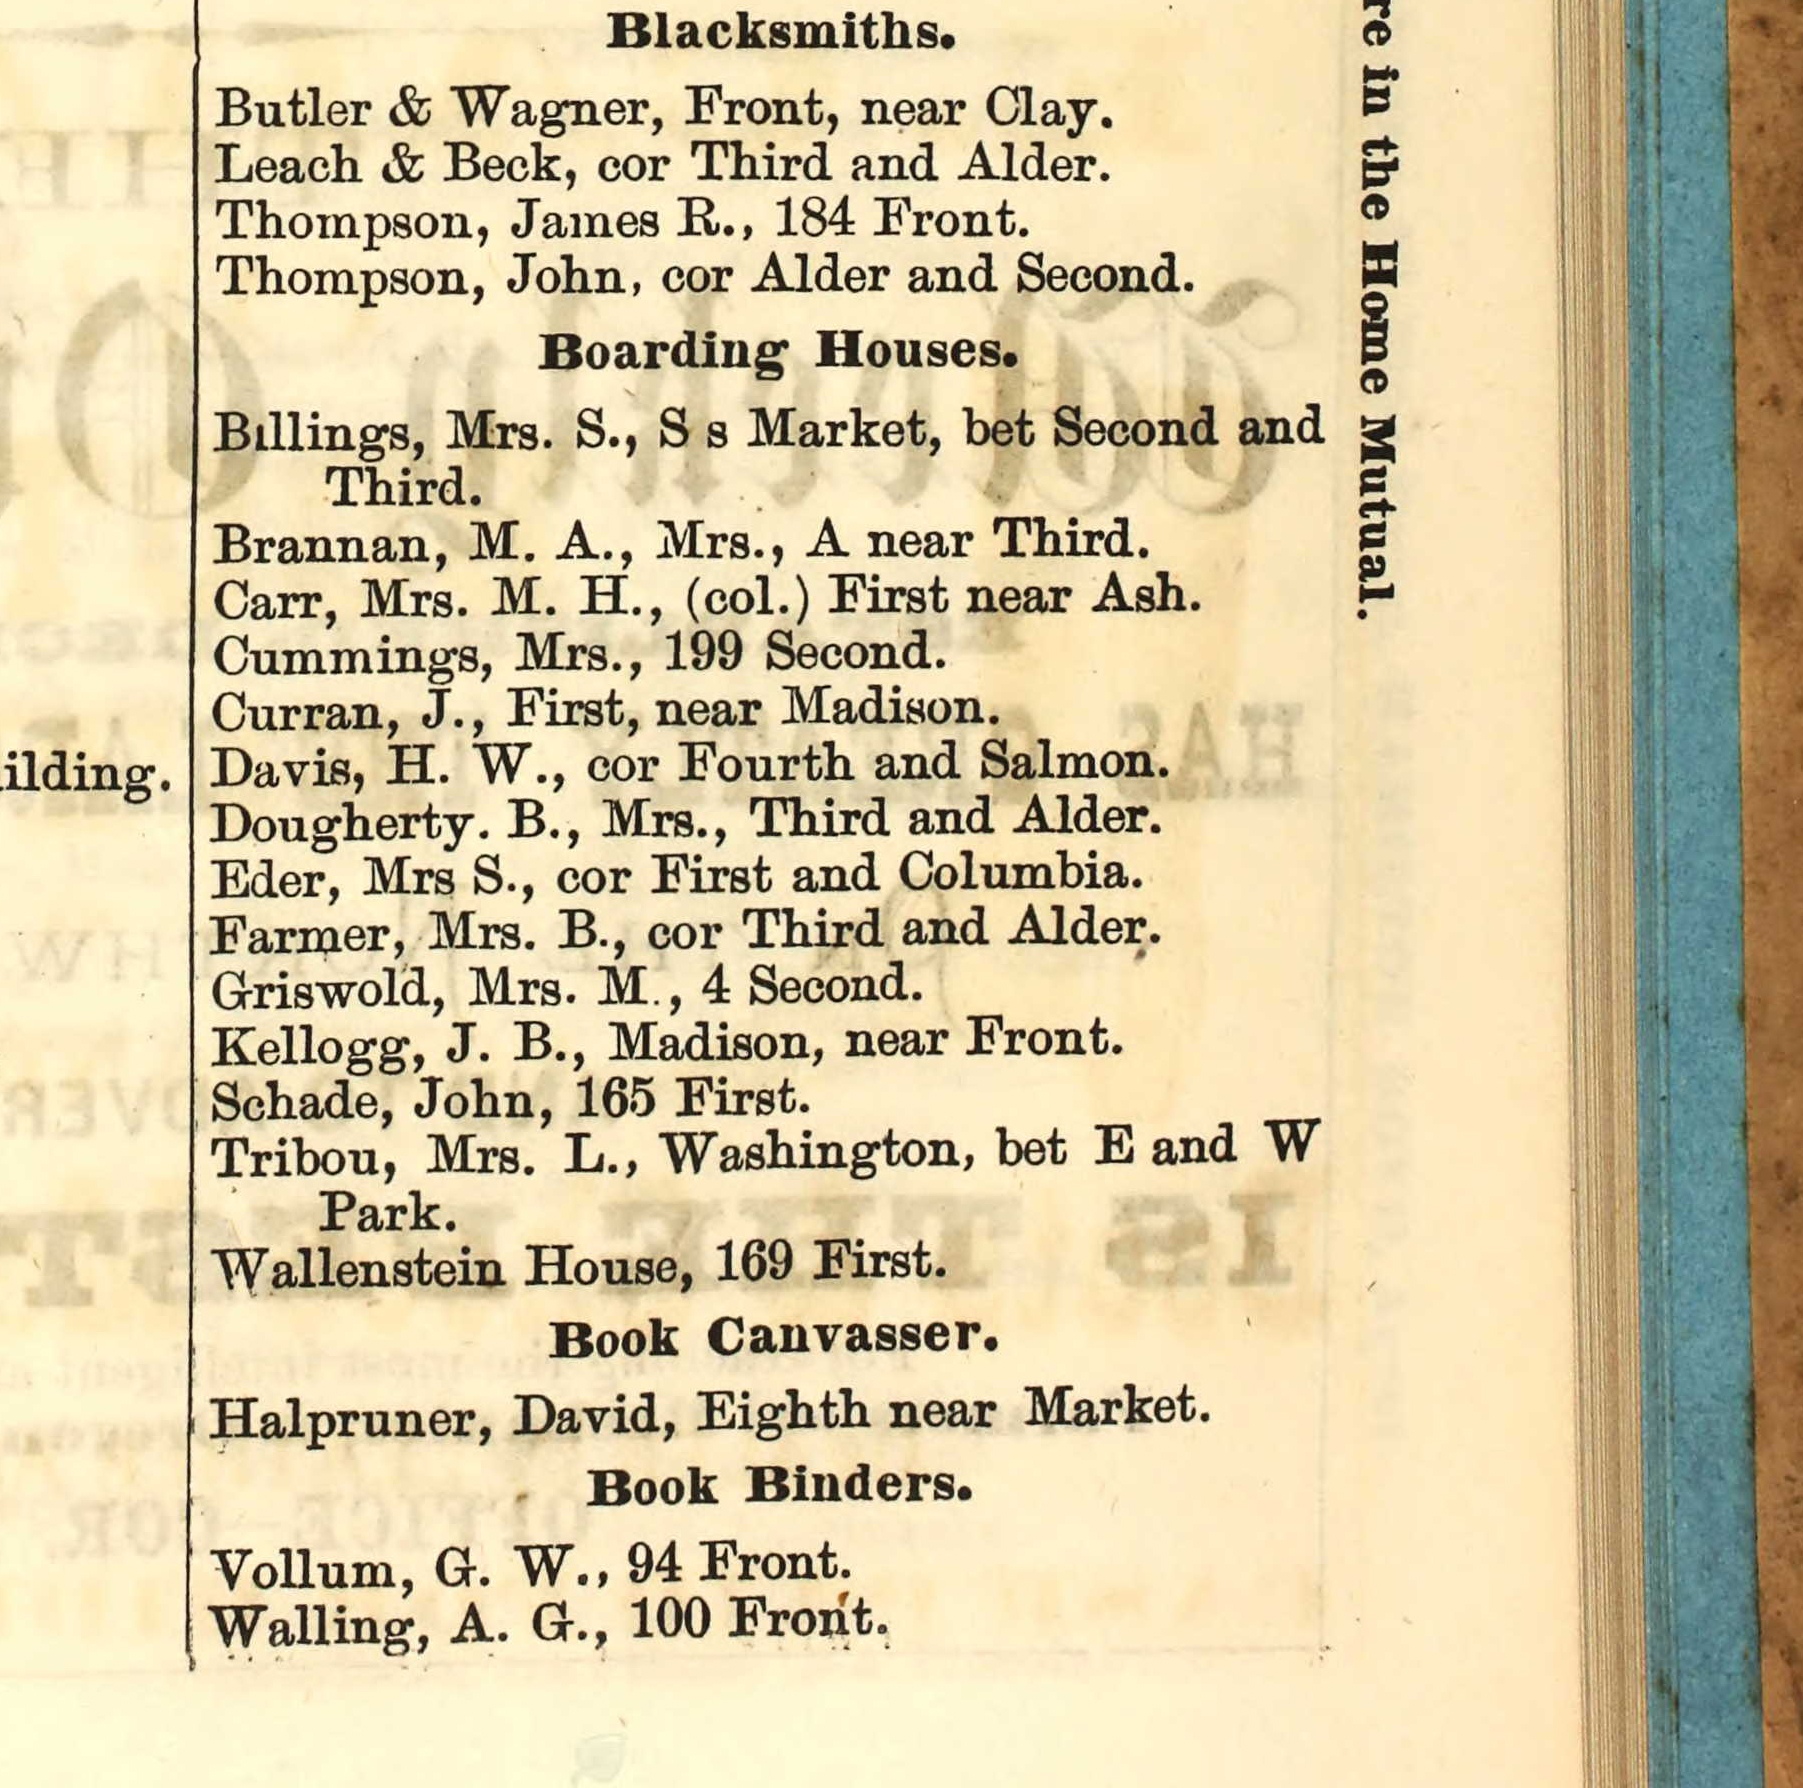 Blacksmiths.
Butler & Wagner, Front, near Clay.
Leach & Beck, cor Third and Alder.
Thompson, James R., 184 Front.
Thompson, John, cor Alder and Second.
Boarding Houses.
Billings, Mrs. S., S s Market, bet Second and
Third.
Brannan, M. A., Mrs., A near Third.
Carr, Mrs. M. H., (col.) First near Ash.
Cummings, Mrs., 199 Second.
Curran, J., First, near Madison.
Davis, H. W., cor Fourth and Salmon.
Dougherty. B., Mrs., Third and Alder.
Eder, Mrs S., cor First and Columbia.
Farmer, Mrs. B., cor Third and Alder.
Griswold, Mrs. M., 4 Second.
Kellogg, J. B., Madison, near Front.
Schade, John, 165 First.
Tribou, Mrs. L., Washington, bet E and W
Park.
Wallenstein House, 169 First.
Book Canvasser.
Halpruner, David, Eighth near Market.
Book Binders.
Vollum, G. W., 94 Front.
Walling, A. G., 100 Front.
ilding.
re in the Home Mutual.